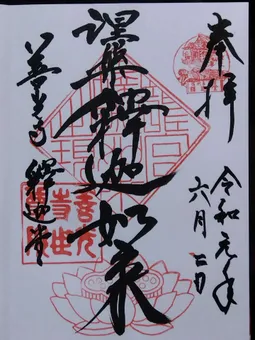 奉拝
令和元年
六月二日
涅槃釋迦如来
善光寺 釋迦堂